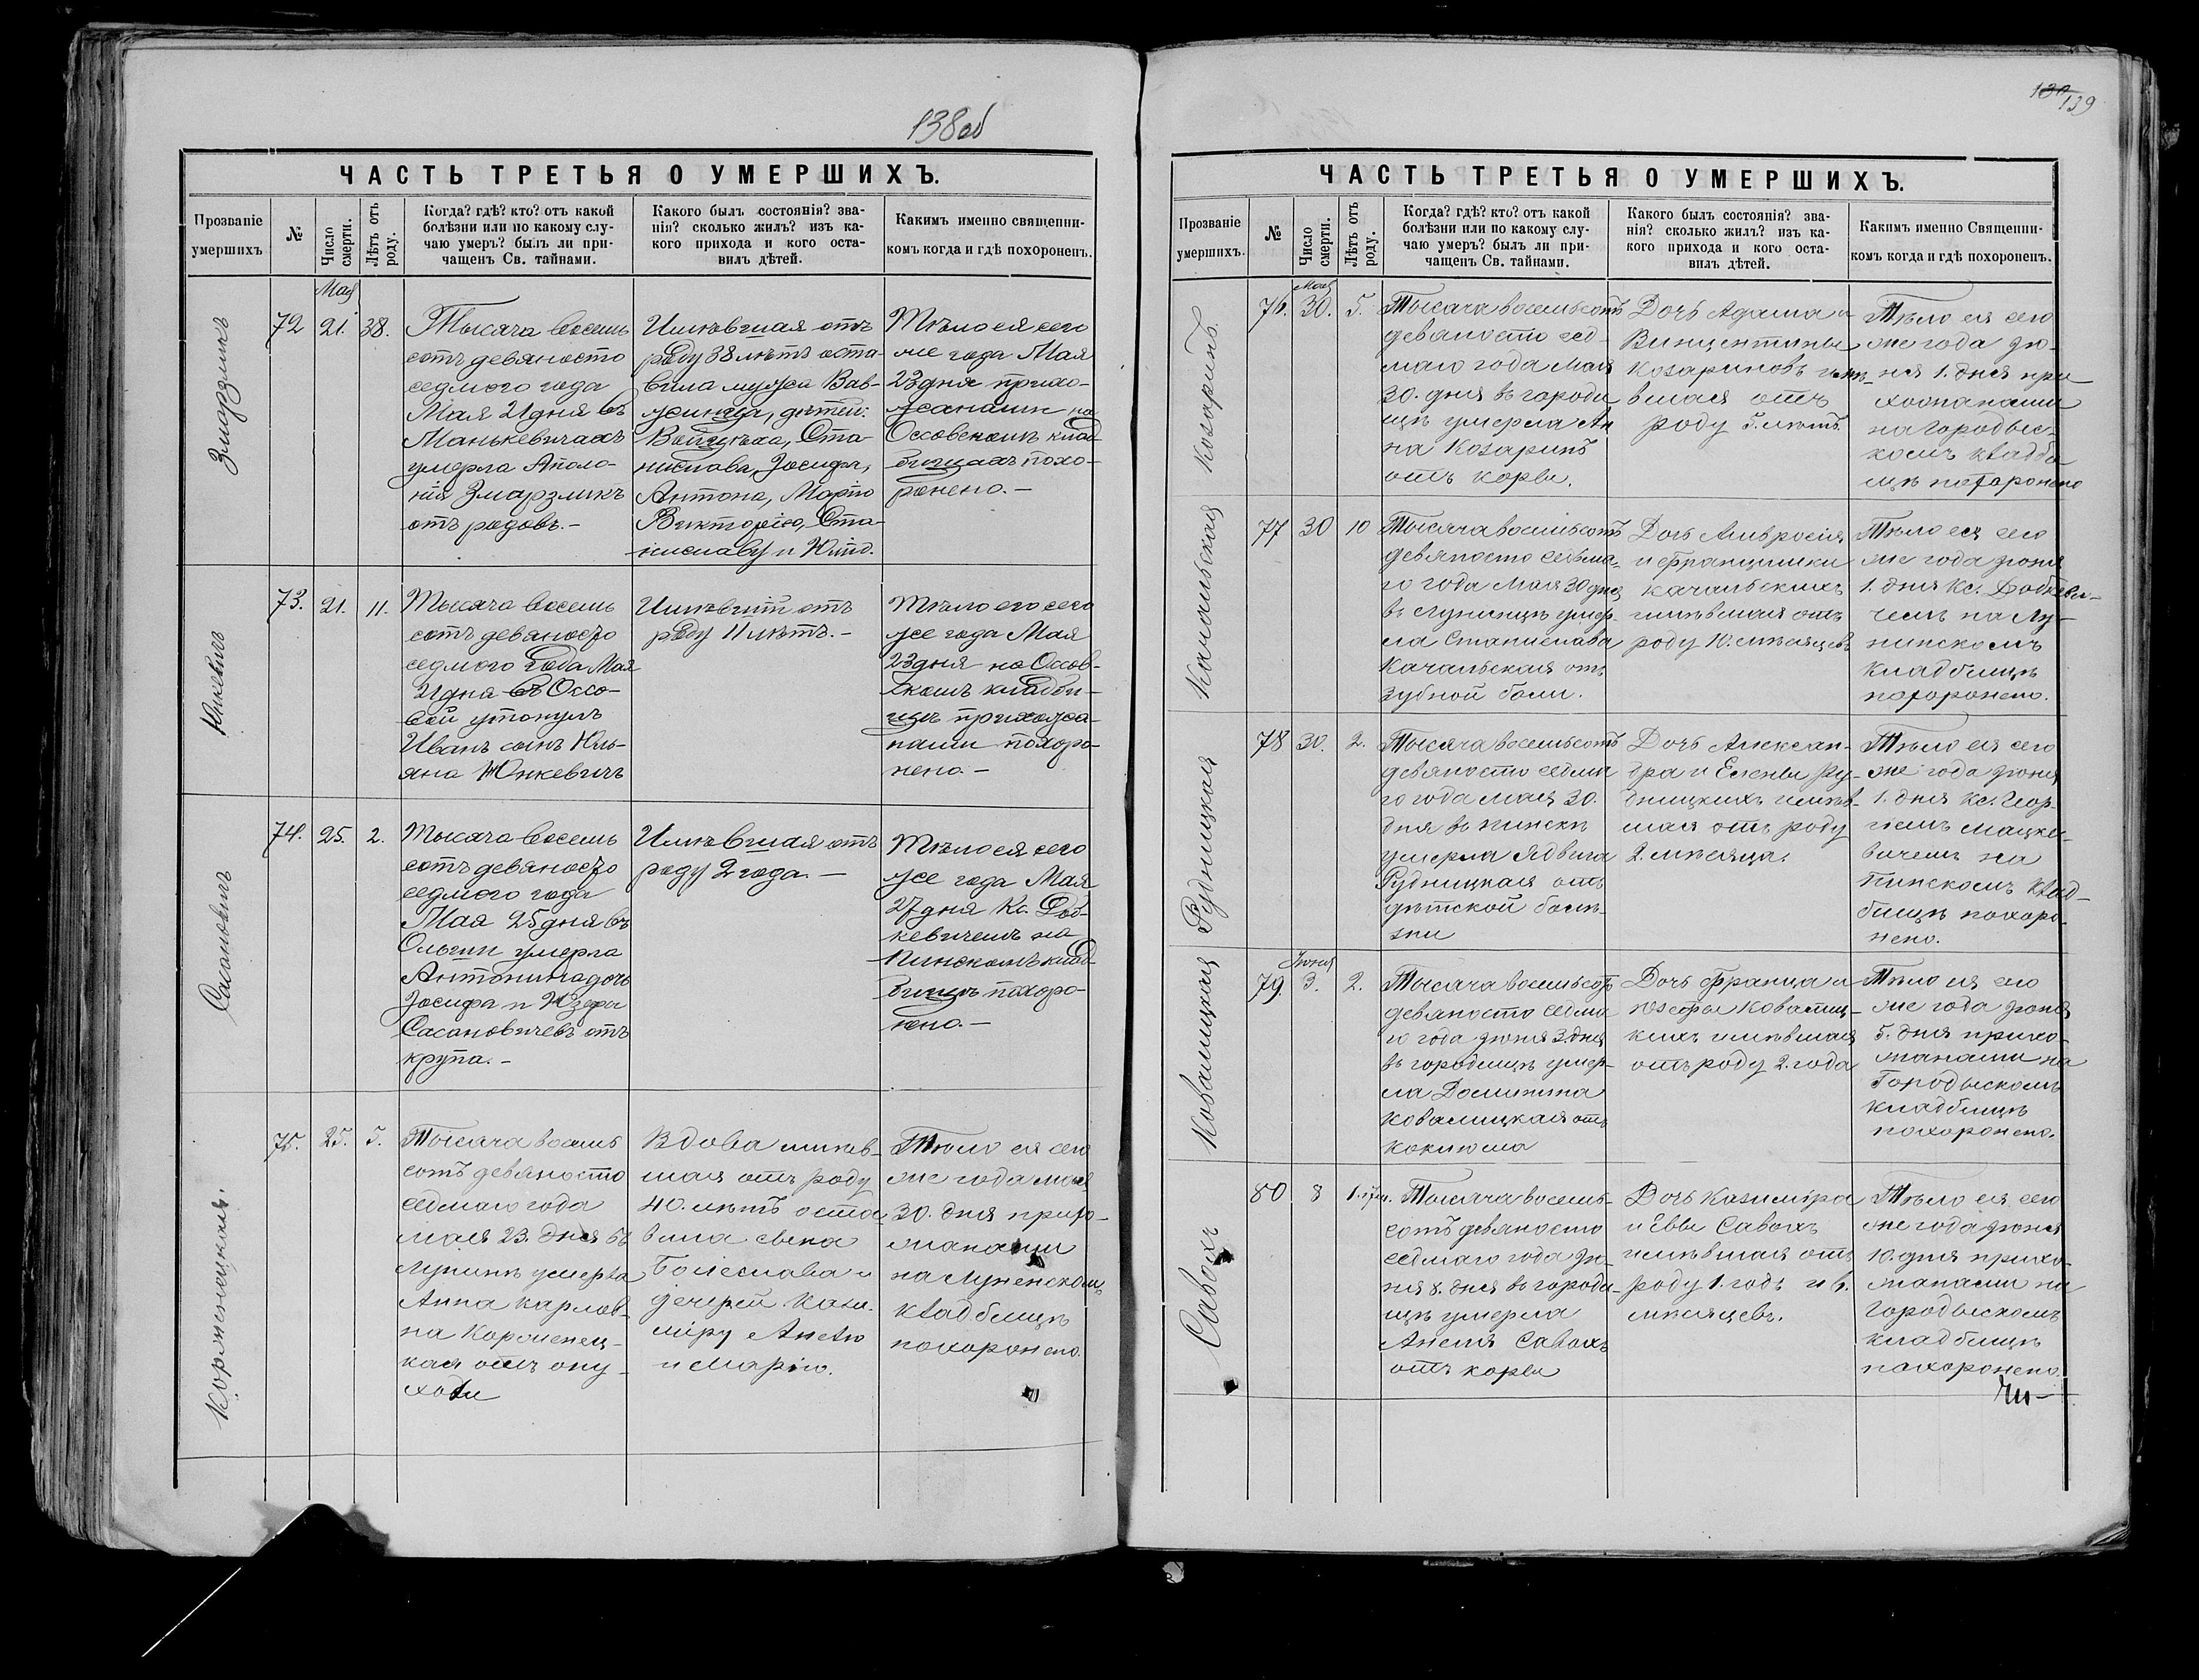 138 об
ЧАСТЬ ТРЕТЬЯ О УМЕРШИХЪ.
Прозваніе
умершихъ
№
Число
смерти.
Лѣтъ отъ
роду.
Когда? гдѣ? кто? отъ какой
болѣзни или по какому слу-
чаю умеръ? былъ ли при-
чащенъ Св. тайнами.
Какого былъ состоянія? зва-
нія? сколько жилъ? изъ ка-
кого прихода и кого оста-
вилъ дѣтей.
Какимъ именно священни-
комъ когда и гдѣ похороненъ.
Змарзликъ
72
Мая
21.
38.
Тысяча восемь
сотъ девяносто
седмого года
Мая 21 дня въ
Манькевичахъ
умерла Аполо-
нія Змарзликъ
отъ родовъ.-
Имѣвшая отъ
роду 38 лѣтъ оста-
вила мужа Вав-
жинца, дѣтей:
Войцѣха, Ста-
нислава, Іосифа,
Антона, Марію
Викторію, Ста-
ниславу и Юлію.
Тѣло ея сего
же года Мая
23 дня прихо-
жанами на
Оссовскомъ клад-
бищахъ похо-
ронено.-
Юнкевичъ
73.
21.
11.
Тысяча восемь
сотъ девяносто
седмого года Мая
21 дня въ Оссо-
вой утонулъ
Иванъ сынъ Юль-
яна Юнкевичъ
Имѣвшій отъ
роду 11 лѣтъ.-
Тѣло его сего
же года Мая
23 дня на Оссов-
скомъ кладби-
щѣ прихожа-
нами похоро-
нено.-
Сасановичъ
74.
25.
2.
Тысяча восемь
сотъ девяносто
седмого года
Мая 25 дня въ
Ольгин умерла
Антонина дочь
Іосифа и Юзефы
Сасановичевъ отъ
крупа.-
Имѣвшая отъ
роду 2 года.-
Тѣло ея сего
же года Мая
27 дня Кс. Доб-
кевичемъ на
Пинскомъ клад-
бищѣ похоро-
нено.-
Корженецкая.
75.
25.
5.
Тысяча восемь
сотъ девяносто
седмаго года
мая 23. дня въ
Лунинѣ умерла
Анна Карлов-
на Корженец-
кая отъ опу-
холи
Вдова имѣв-
шая отъ роду
40. лѣтъ оста
вила сына
Болеслава и
дочерей Кази-
міру Анелю
и Марію.
Тѣло ея сего
же года мая
30. дня прихо-
жанами
на Луненскомъ
кладбищѣ
похоронено.
139
ЧАСТЬ ТРЕТЬЯ О УМЕРШИХЪ.
Прозваніе
умершихъ.
№
Число
смерти.
Лѣтъ отъ
роду.
Когда? гдѣ? кто? отъ какой
болѣзни или по какому слу-
чаю умеръ? былъ ли при-
чащенъ Св. тайнами.
Какого былъ состоянія? зва-
нія? сколько жилъ? изъ ка-
кого прихода и кого оста-
вилъ дѣтей.
Какимъ именно Священни-
комъ когда и гдѣ похороненъ.
Козаринъ.
76.
Мая
30.
5.
Тысяча восемьсотъ
девяносто сед-
маго года мая
30. дня въ городи
щѣ умерла Ан
на Козаринъ
отъ корви.
Дочь Адама и
Винцентины
Козариновъ имѣ-
вшая отъ
роду 5. лѣтъ.
Тѣло ея сего
же года Ію-
ня 1. дня при
хожанами
на Городыс-
комъ кладби
щѣ похоронено
Качальская
77
30
10
Тысяча восемьсотъ
девяносто седьма-
го года мая 30 дня
въ Лунинцѣ умер-
ла Станислава
Качальская отъ
зубной боли.
Дочь Амвросія
и Францишки
Качальскихъ
имѣвшая отъ
роду 10. мѣсяцевъ
Тѣло ея сего
же года Іюня
1. дня Кс. Добкеви-
чемъ на Лу-
нинскомъ
кладбищѣ
похоронено.
Рудницкая
78
30.
2.
Тысяча восемьсотъ
девяносто седма
го года мая 30.
дня въ Пинскѣ
умерла Ядвига
Рудницкая отъ
дѣтской болѣ-
зни
Дочь Алексан-
дра и Елены Ру-
дницкихъ имѣв-
шая отъ роду
2. мѣсяца.
Тѣло ея сего
же года Іюня
1. дня Кс. Геор-
гіемъ Мацке-
вичемъ на
Пинскомъ клад-
бищѣ похоро-
нено.
Ковалицкая
79.
Іюня
3.
2.
Тысяча восемьсотъ
девяносто седма
го года Іюня 3 дня
въ городищѣ умер-
ла Доминика
Ковалицкая отъ
коклюша
Дочь Франца и
Юзефы Ковалиц-
кихъ имѣвшая
отъ роду 2. года
Тѣло ея сего
же года Іюня
5. дня прихо-
жанами на
Городыскомъ
кладбищѣ
похоронено.
Савохъ
80.
8
Тысяча восемь-
сотъ девяносто
седмаго года Ію-
ня 8. дня въ городи-
щѣ умерла
Анеля Савохъ
отъ корви
Дочь Казиміра
и Евы Савохъ
имѣвшая отъ
роду 1. годъ и 6.
мѣсяцевъ.
Тѣло ея сего
же года Іюня
10. дня прихо-
жанами на
Городыскомъ
кладбищѣ
похоронено.